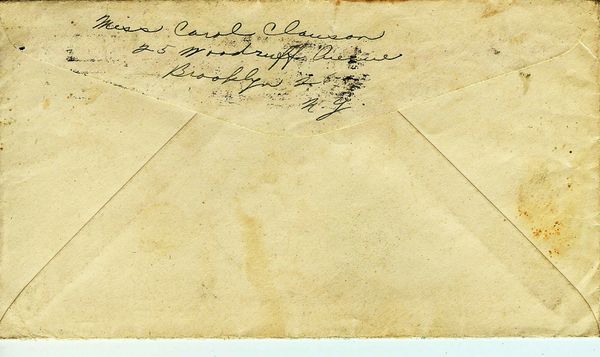 Miss Carol Clawson
25 Woodruff Avenue
Brooklyn 2
N.Y.